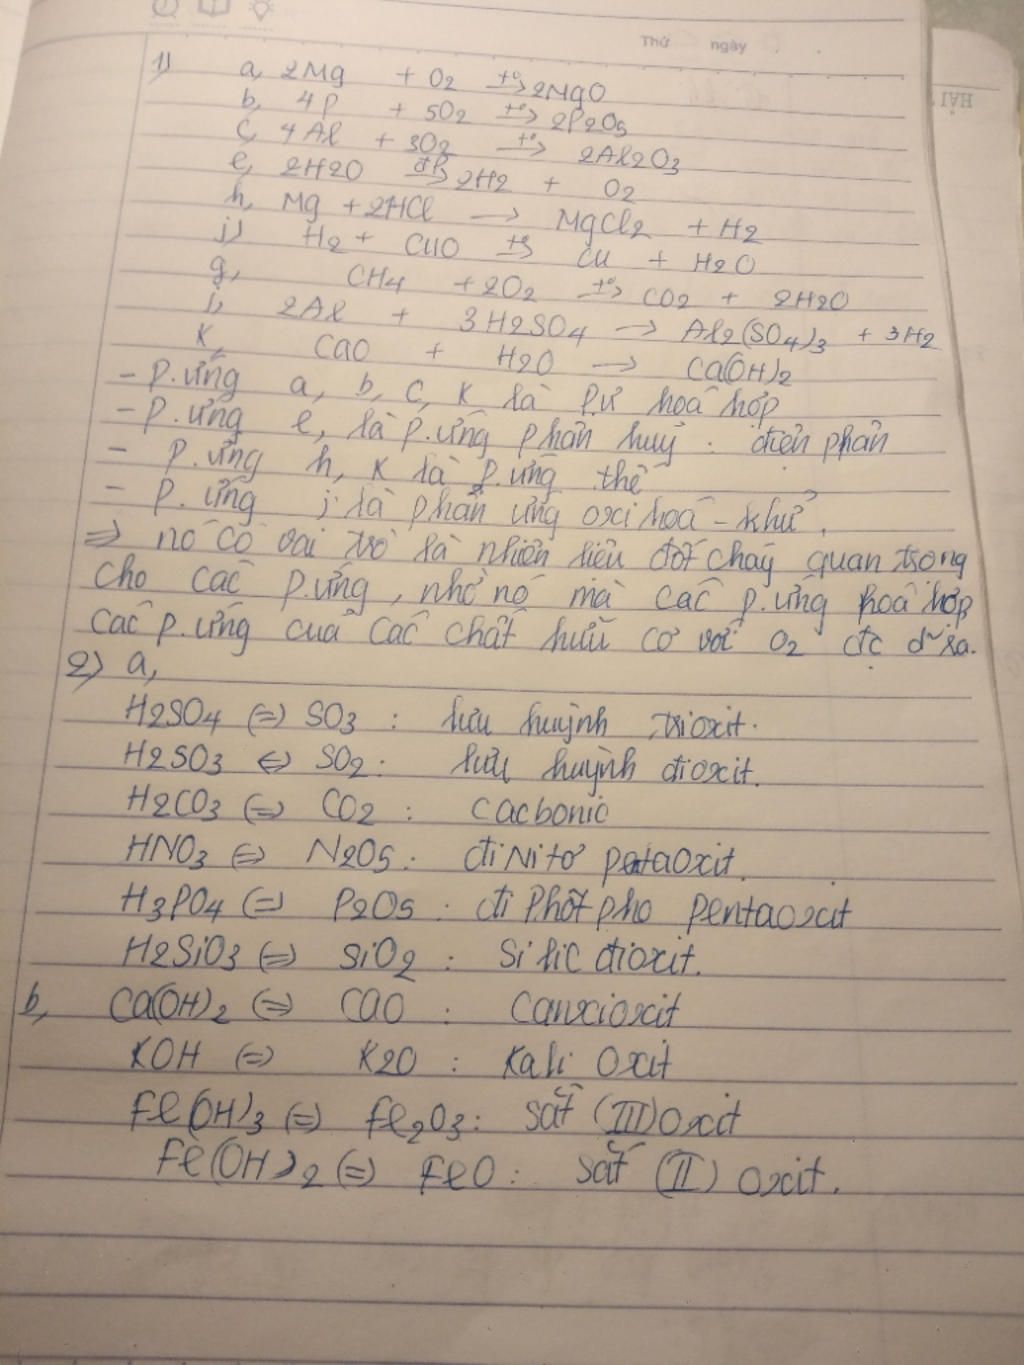 Thứ ngày
HẢI
1) a, 2Mg + O2 t°→ 2MgO
b, 4P + 5O2 t°→ 2P2O5
c, 4Al + 3O2 t°→ 2Al2O3
e, 2H2O đp→ 2H2 + O2
h, Mg + 2HCl → MgCl2 + H2
j) H2 + CuO t°→ Cu + H2O
g, CH4 + 2O2 t°→ CO2 + 2H2O
i, 2Al + 3H2SO4 → Al2(SO4)3 + 3H2
K, CaO + H2O → Ca(OH)2
- P.ứng a, b, c, K là P.Ư hoá hợp
- P.ứng e, là p.ứng phân huỷ : điện phân
- P.ứng h, K là P.ứng thế
- P.ứng j là phản ứng oxi hoá - khử.
=> nó có vai trò là nhiên liệu đốt cháy quan trọng
cho các p.ứng, nhờ nó mà các p.ứng hoá hợp
các p.ứng của các chất hữu cơ với O2 đc d~ ra.
2) a,
H2SO4 <=> SO3 : lưu huỳnh trioxit.
H2SO3 <=> SO2 : lưu huỳnh đioxit.
H2CO3 <=> CO2 : Cacbonic
HNO3 <=> N2O5 : đi Nitơ pentaoxit.
H3PO4 <=> P2O5 : đi Phôtpho pentaoxit
H2SiO3 <=> SiO2 : Silic đioxit.
b, Ca(OH)2 <=> CaO : Canxioxit
KOH <=> K2O : Kali Oxit
Fe(OH)3 <=> Fe2O3 : Sắt (III) Oxit
Fe(OH)2 <=> FeO : Sắt (II) Oxit.